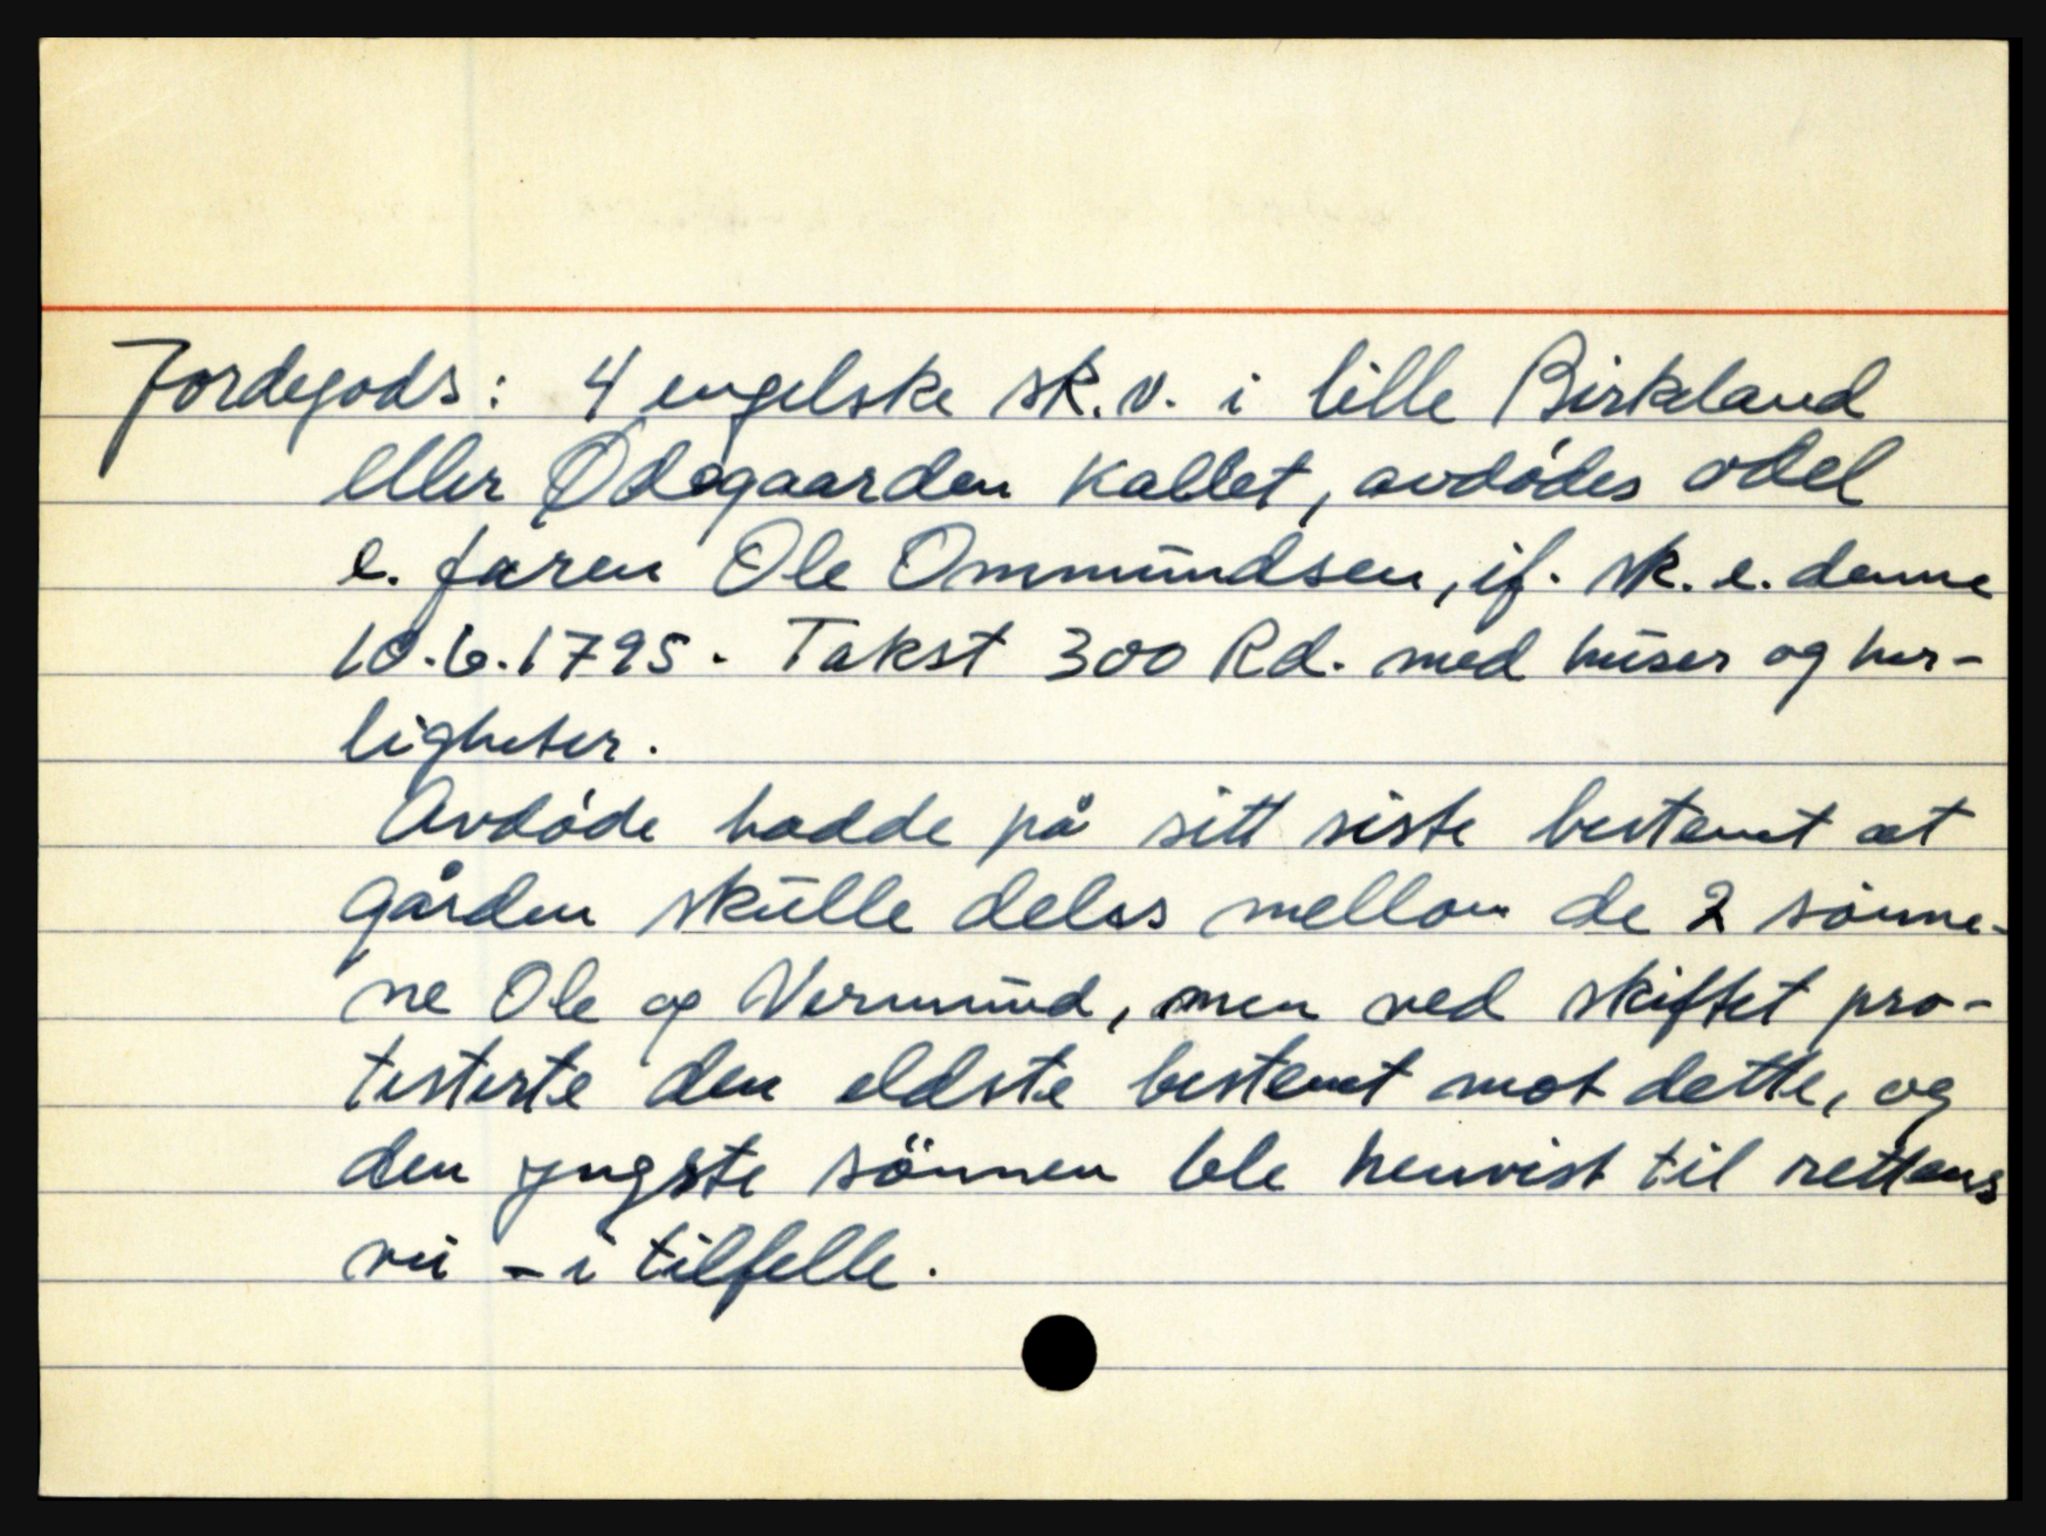 Jordegods: 4 engelske sk.v. i lille Birkeland
eller Ødegaarden kallet, avdødes odel
e. faren Ole Ommundsen, if. sk. e. denne
10.6.1795. Takst 300 Rd. med huser og her-
ligheter.
Avdøde hadde på sitt siste bestemt at
gården skulle deles mellom de 2 sønne-
ne Ole og Vermund, men ved skiftet pro-
testerte den eldste bestemt mot dette, og
den yngste sönnen ble henvist til rettens
vei - i tilfelle.